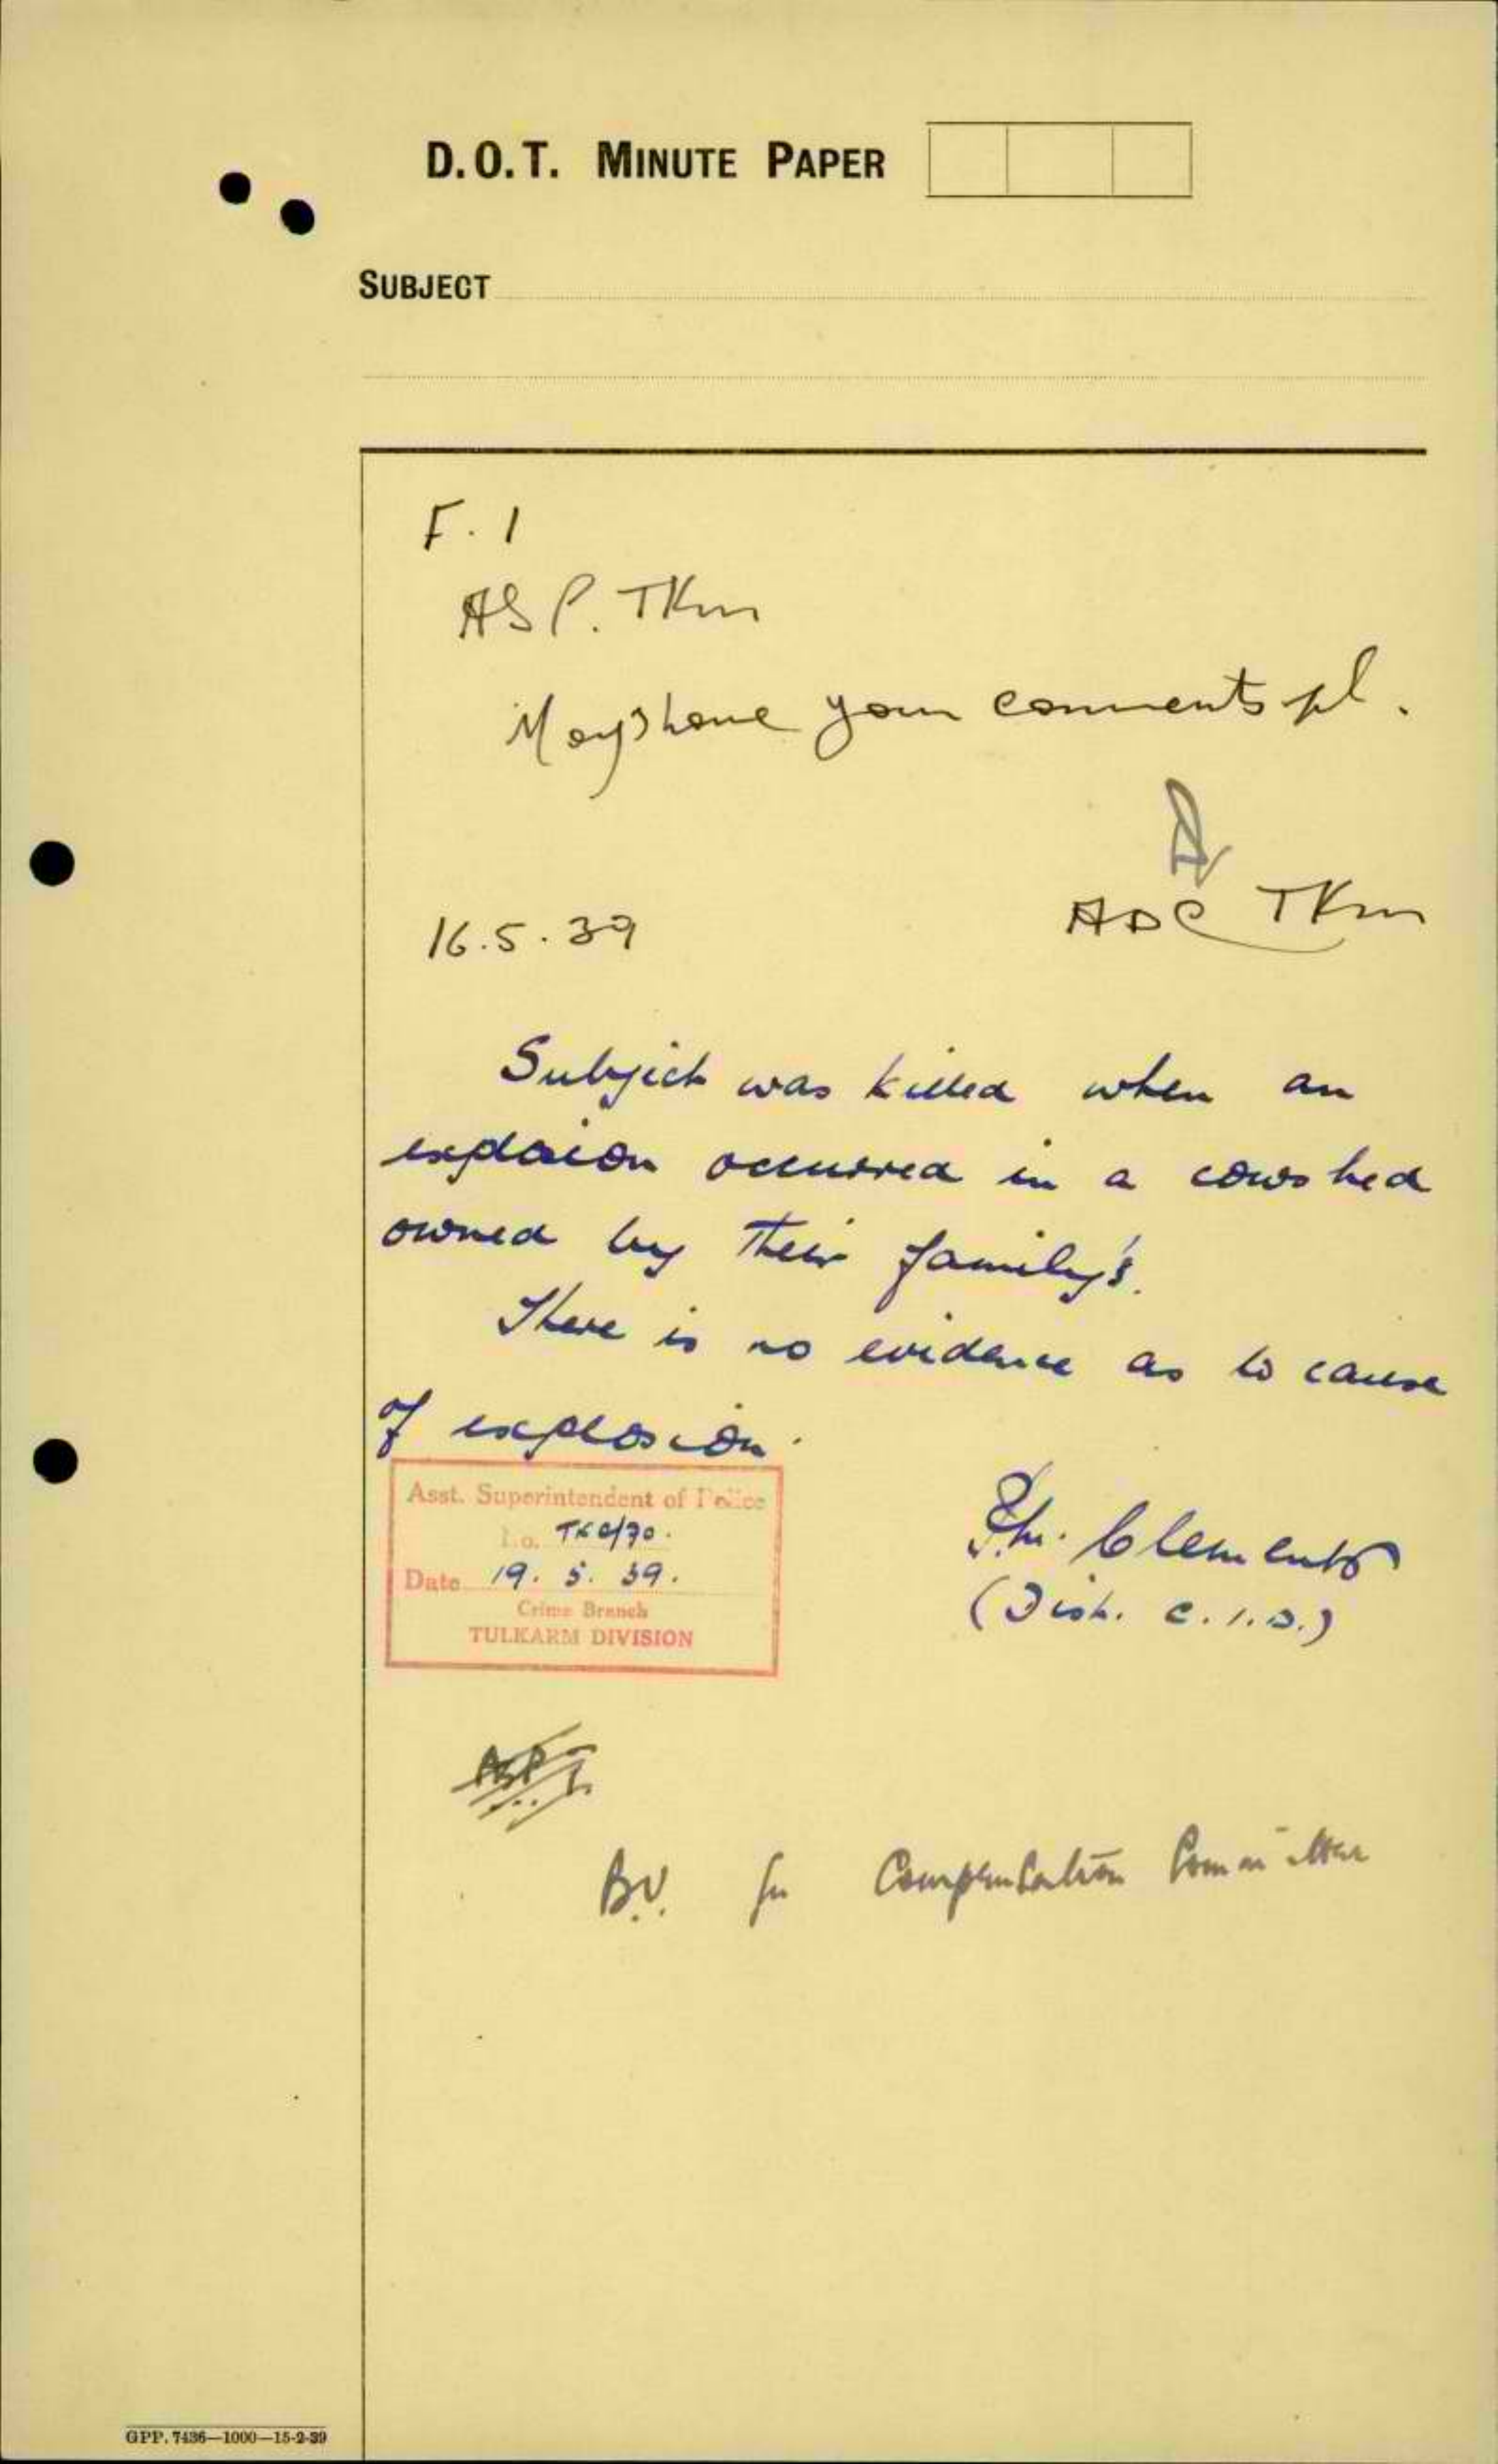 D.O.T. MINUTE PAPER
SUBJECT
F. 1
ASP. TKm
May I have your comments pl.
ADC TKm
16.5.39
Subject was killed when an
explosion occurred in a cowshed
owned by their family's.
There is no evidence as to cause
of explosion.
Asst. Superintendent of Police
No. TKC/70.
Date 19. 5. 39.
Crime Branch
TULKARM DIVISION
Clements
(Dist. C.I.D.)
B.U. for Compensation Committee
GPP. 7436—1000—15-2-39